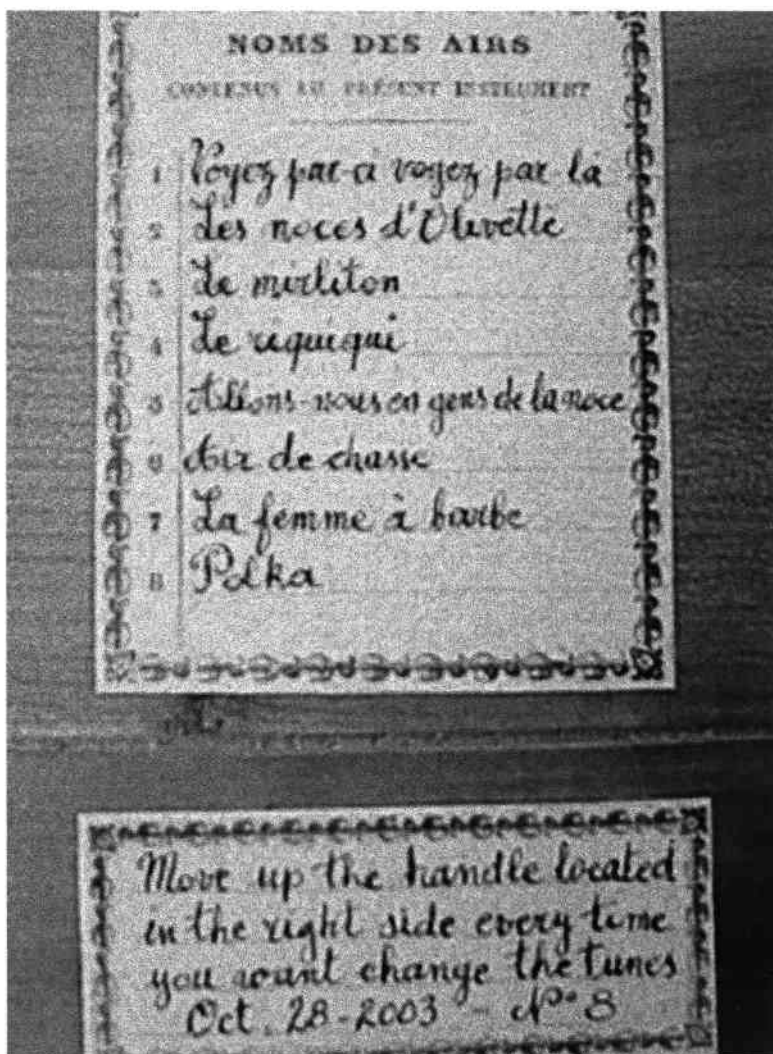 NOMS DES AIRS
CONTENUS AU PRÉSENT INSTRUMENT
1 Voyez par-ci voyez par là
2 Les noces d'Olivette
3 Le mirliton
4 Le riquiqui
5 Allons-nous en gens de la noce
6 Air de chasse
7 La femme à barbe
8 Polka
Move up the handle located
in the right side every time
you want change the tunes
Oct. 28-2003 - Nº 8